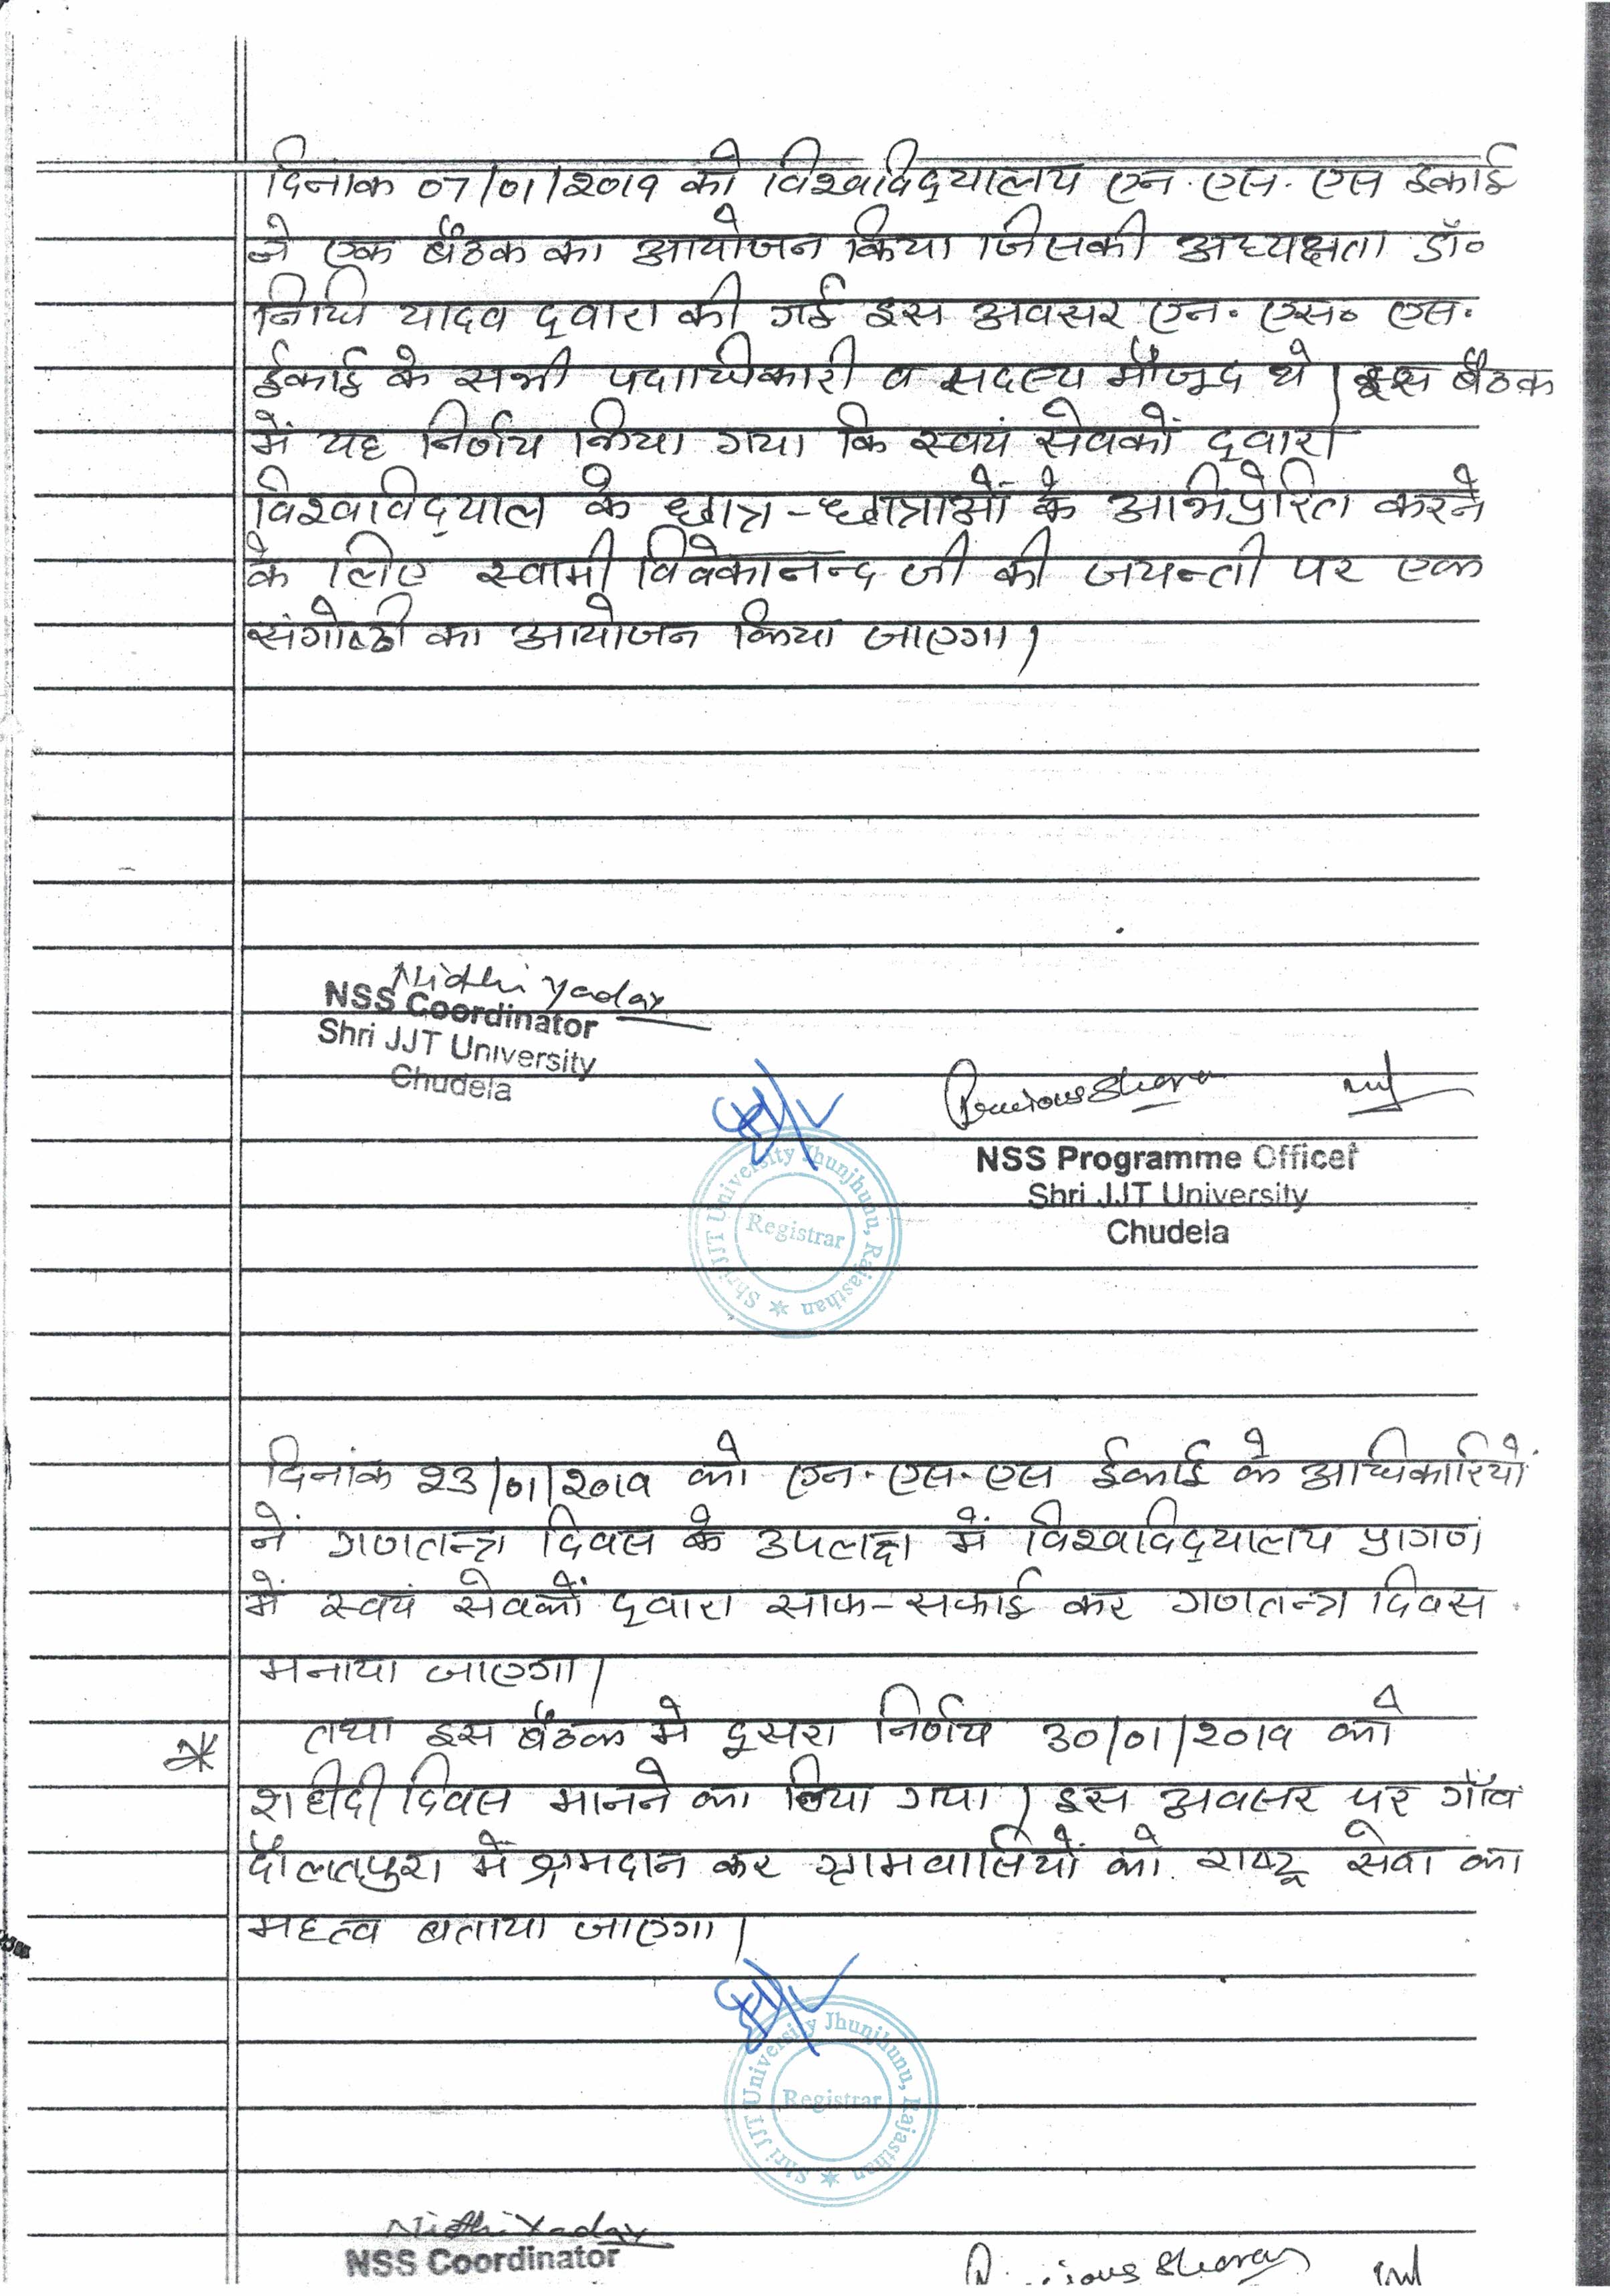 दिनांक 07/01/2019 को विश्वविद्यालय एन. एस. एस इकाई
ने एक बैठक का आयोजन किया जिसकी अध्यक्षता डॉ०
निधि यादव द्वारा की गई इस अवसर एन. एस० एस.
ईकाई के सभी पदाधिकारी व सदस्य मौजूद थे। इस बैठक
में यह निर्णय लिया गया कि स्वयं सेवकों द्वारा
विश्वविद्याल के छात्र-छात्राओं के अभिप्रेरित करने
के लिए स्वामी विवेकानन्द जी की जयन्ती पर एक
संगोष्ठी का आयोजन किया जाएगा।
Nidhi Yadav
NSS Coordinator
Shri JJT University
Chudela
NSS Programme Officer
Shri JJT University
Chudela
Shri JJT University Jhunjhunu, Rajasthan
Registrar
दिनांक 23/01/2019 को एन. एस. एस ईकाई के अधिकारियों
नें गणतन्त्र दिवस के उपलक्ष में विश्वविद्यालय प्रागणं
में स्वयं सेवकों द्वारा साफ-सफाई कर गणतन्त्र दिवस
मनाया जाएगा।
तथा इस बैठक मे दूसरा निर्णय 30/01/2019 को
शहीदी दिवस मानने का लिया गया। इस अवसर पर गाँव
दौलतपुरा में श्रमदान कर ग्रामवासियों को राष्ट्र सेवा का
महत्व बताया जाएगा।
Shri JJT University Jhunjhunu, Rajasthan
Registrar
Nidhi Yadav
NSS Coordinator